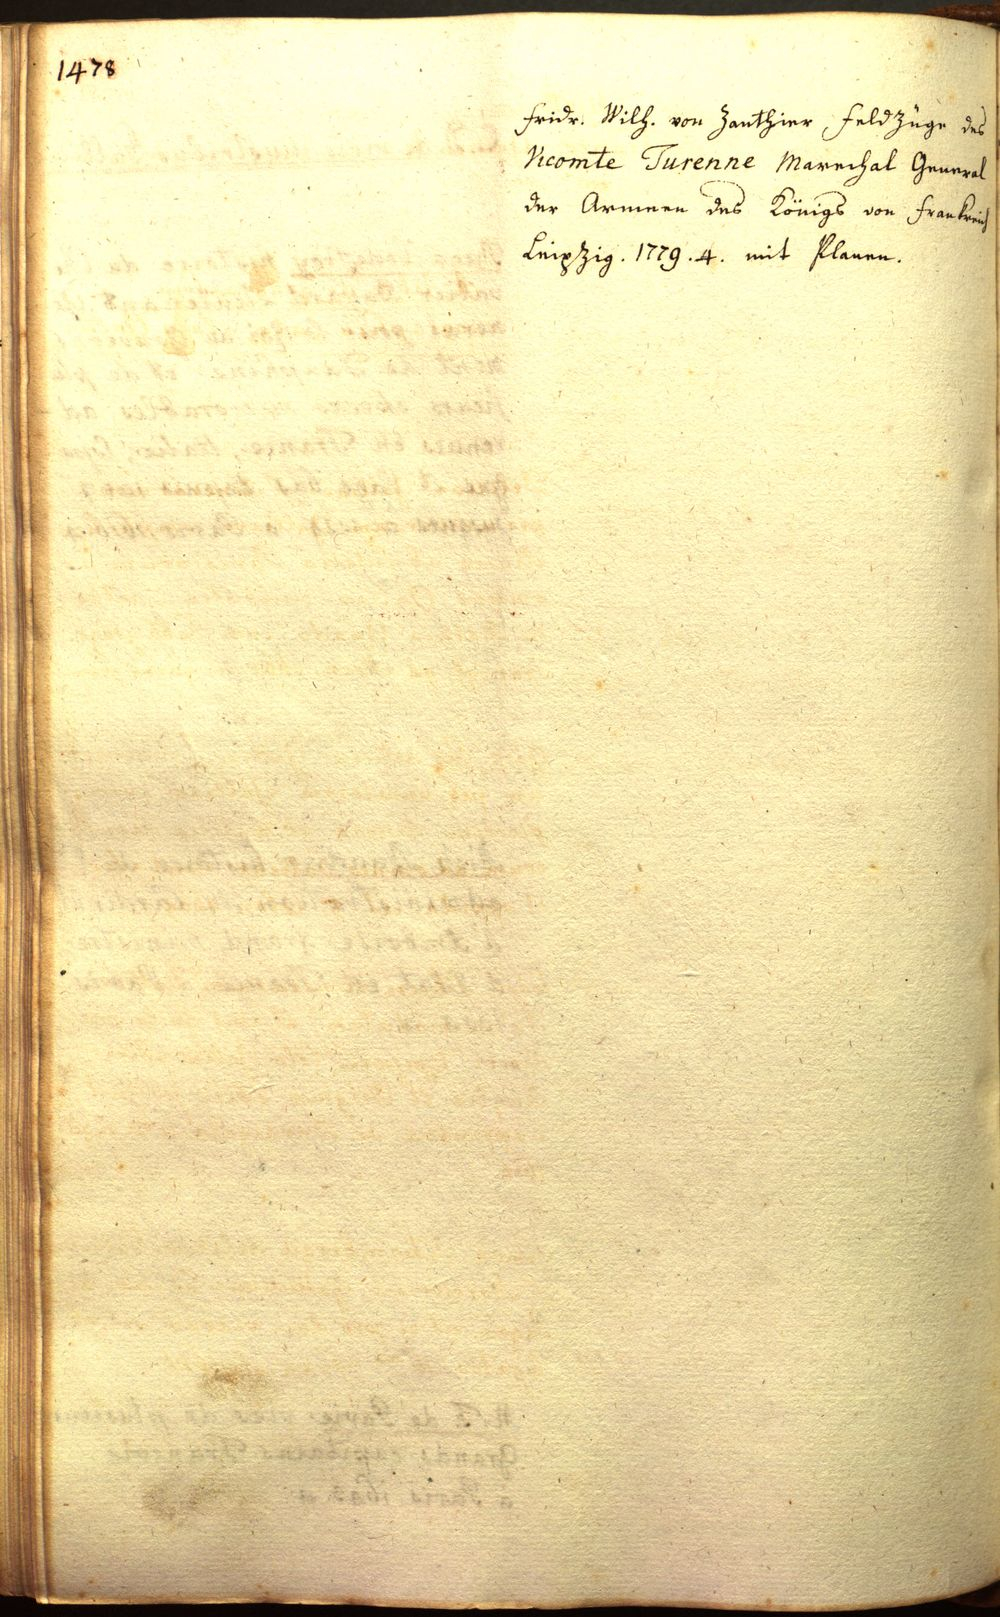 1478
Fridr. Wilh. von Zanthier Feldzüge des
Vicomte Turenne Marechal General
der Armeen des Königs von Frankreich
Leipzig. 1779. 4. mit Planen.